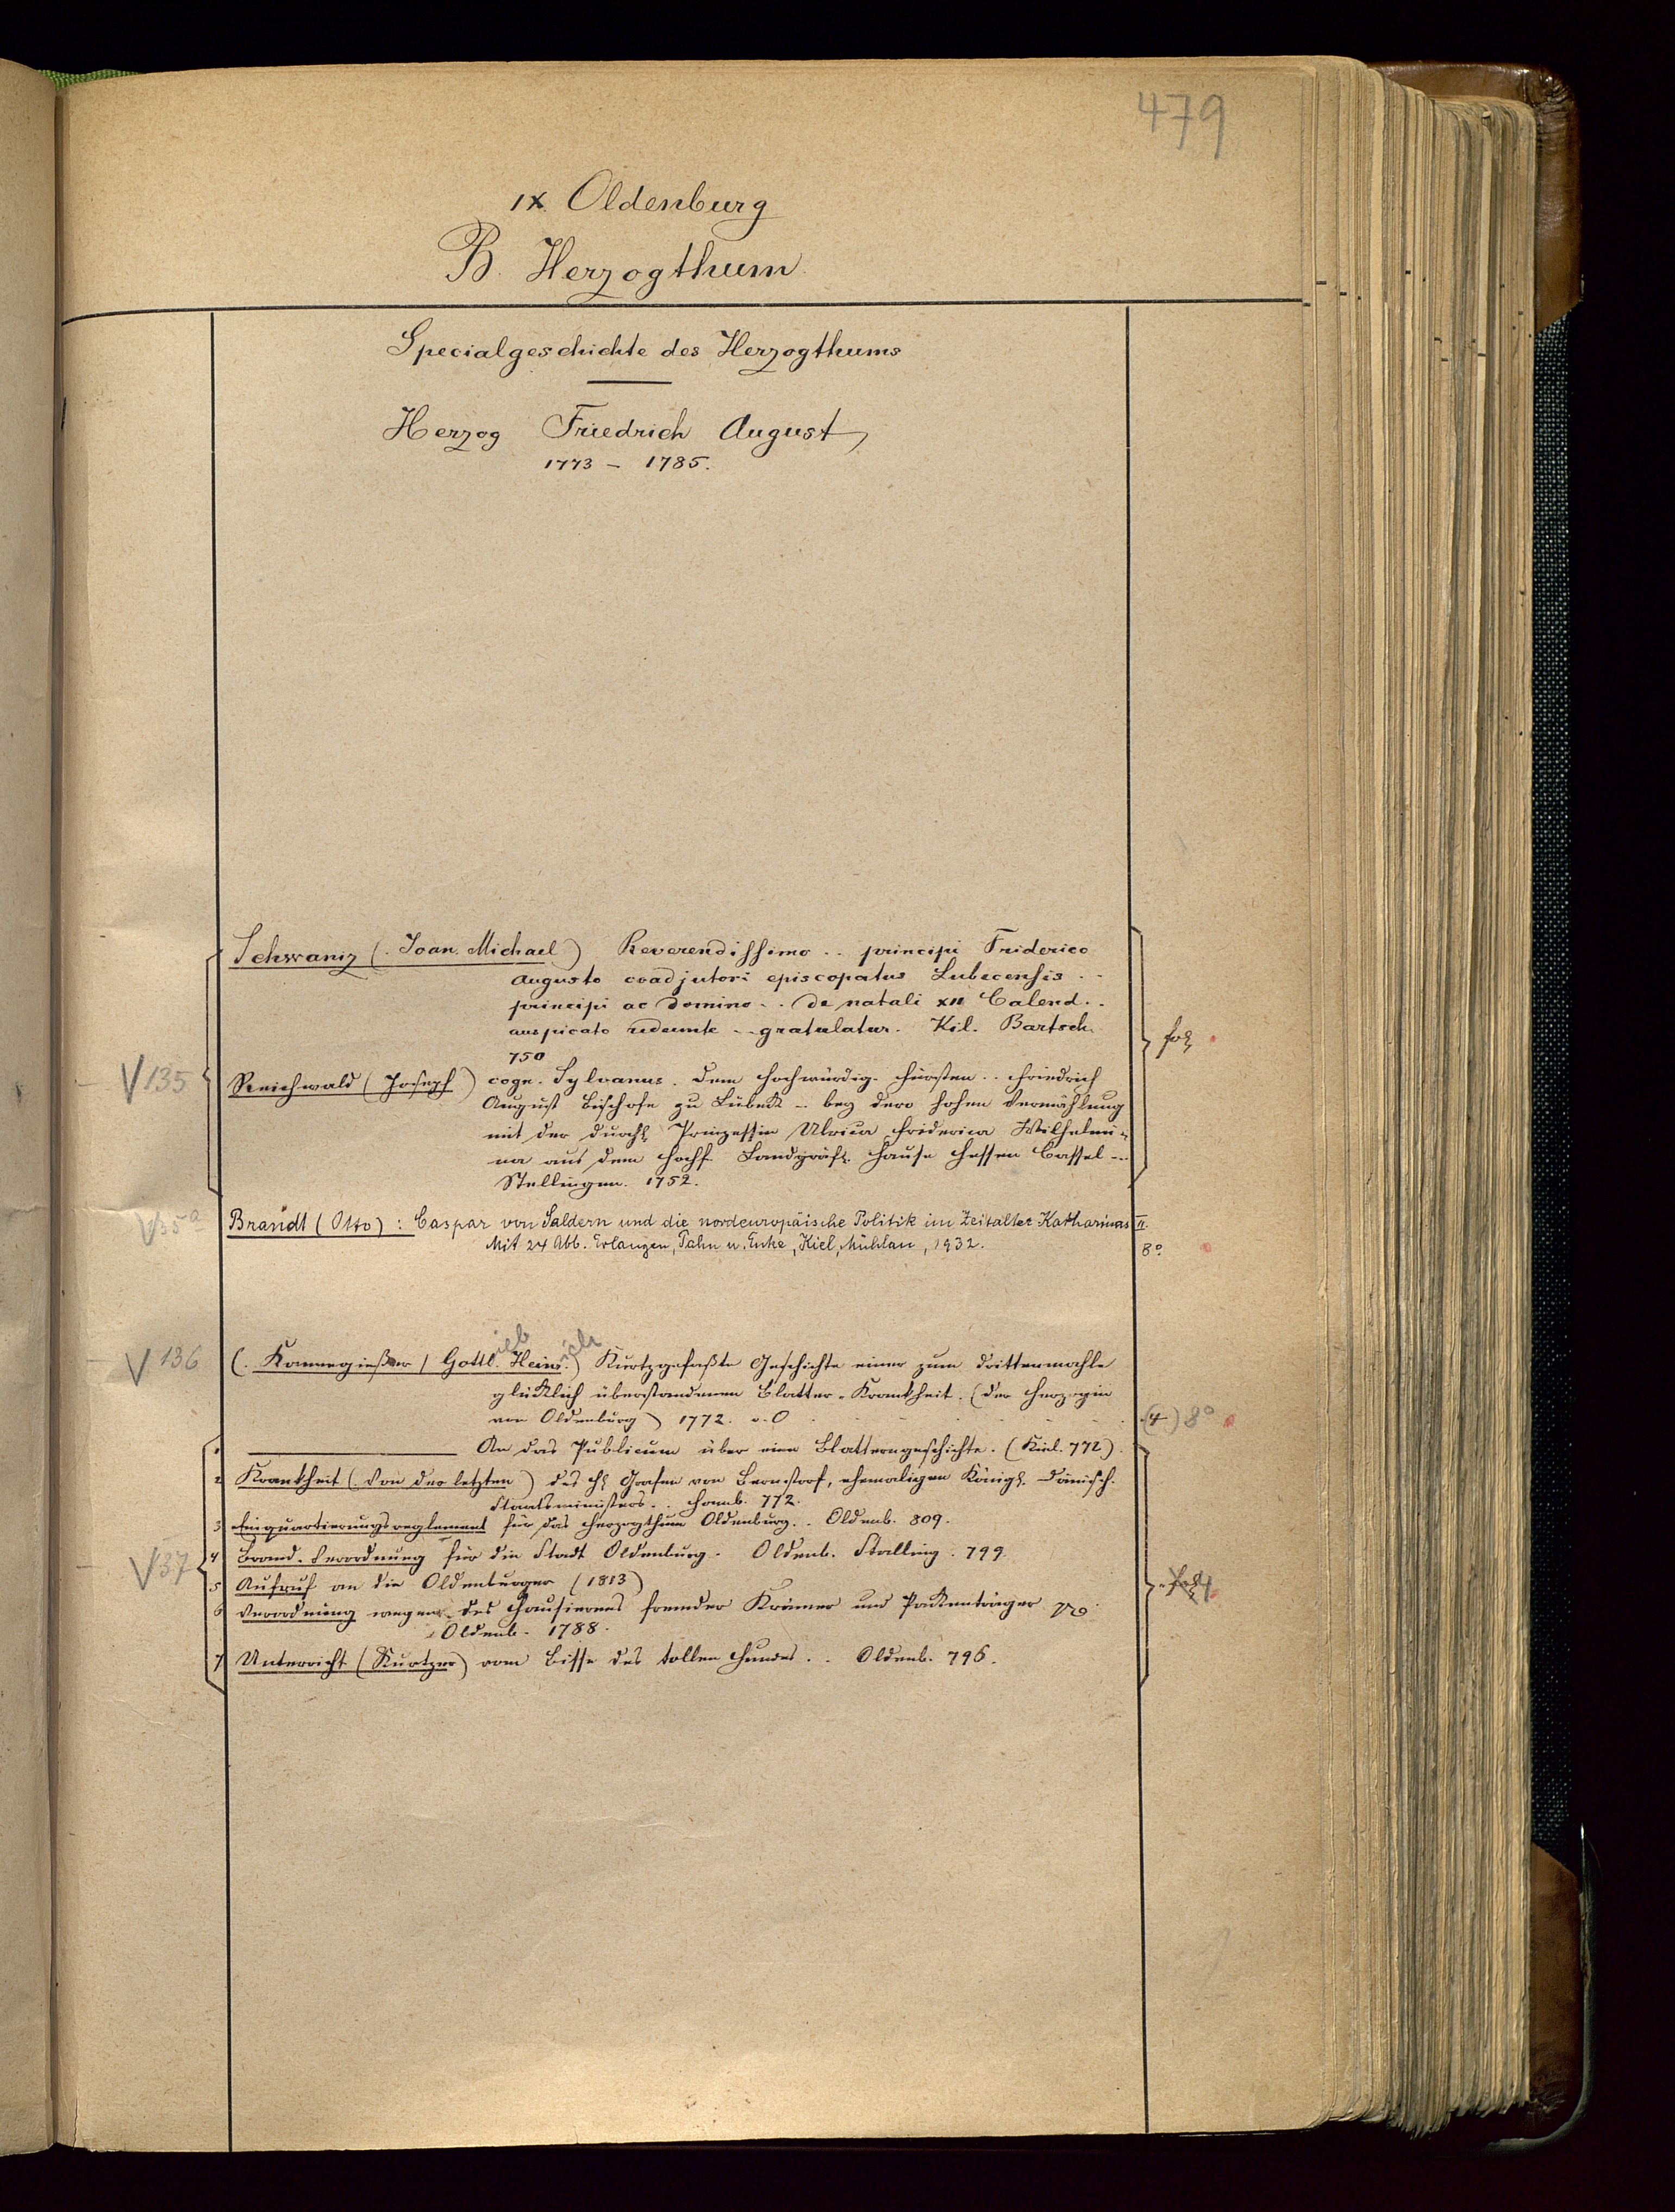 479
IX. Oldenburg
B. Herzogthum
Specialgeschichte des Herzogthums
Herzog Friedrich August
1773 - 1785.
Schwaniz (. Joan. Michael) Reverendissimo .. principi Friderico
Augusto coadjutori episcopatus Lubecensis ..
principi ac domino .. de natali XII Calend. .
auspicato redeunte .. gratulatur. Kil. Bartsch
750
fol.
V 135
Reichwald (Joseph) cogn. Sylvanus. Dem hochwürdig. Fürsten .. Friedrich
August Bischofe zu Lübeck .. bey dero hohen Vermählung
mit der durchl. Prinzessin Ulrica Friderica Wilhelmi-
na aus dem Hochf. Landgräfl. Hause Hessen Cassel ...
Stellingen. 1752.
V 35 a
Brandt (Otto) : Caspar von Saldern und die nordeuropäische Politik im Zeitalter Katharinas II.
Mit 24 Abb. Erlangen, Palm u. Enke, Kiel, Mühlau, 1932.
8°
V 136
(. Kannegießer / Gottlieb. Heinrich.) Kurtzgefaßte Geschichte einer zum drittenmahle
glücklich überstandenen Blatter-Krankheit. (der Herzogin
von Oldenburg) 1772. o. O
(4) 8°
An das Publicum über eine Blatterngeschichte. (Kiel. 772).
2 Krankheit (. Von der letzten) des H. Grafen von Bernstorf, ehemaligen Königl. Dänisch.
Staatsministers .. Hamb. 772.
3 Einquartierungsreglement für das Herzogthum Oldenburg. . Oldenb. 809.
V 37
4 Brand-Verordnung für die Stadt Oldenburg. Oldenb. Stalling. 799.
5 Aufruf an die Oldenburger (1813)
4
6 Verordnung wegen des Hausierens fremder Krämer und Packenträger
Oldenb. 1788.
7 Unterricht (Kurtzer) vom Bisse des tollen Hundes. . Oldenb. 796.